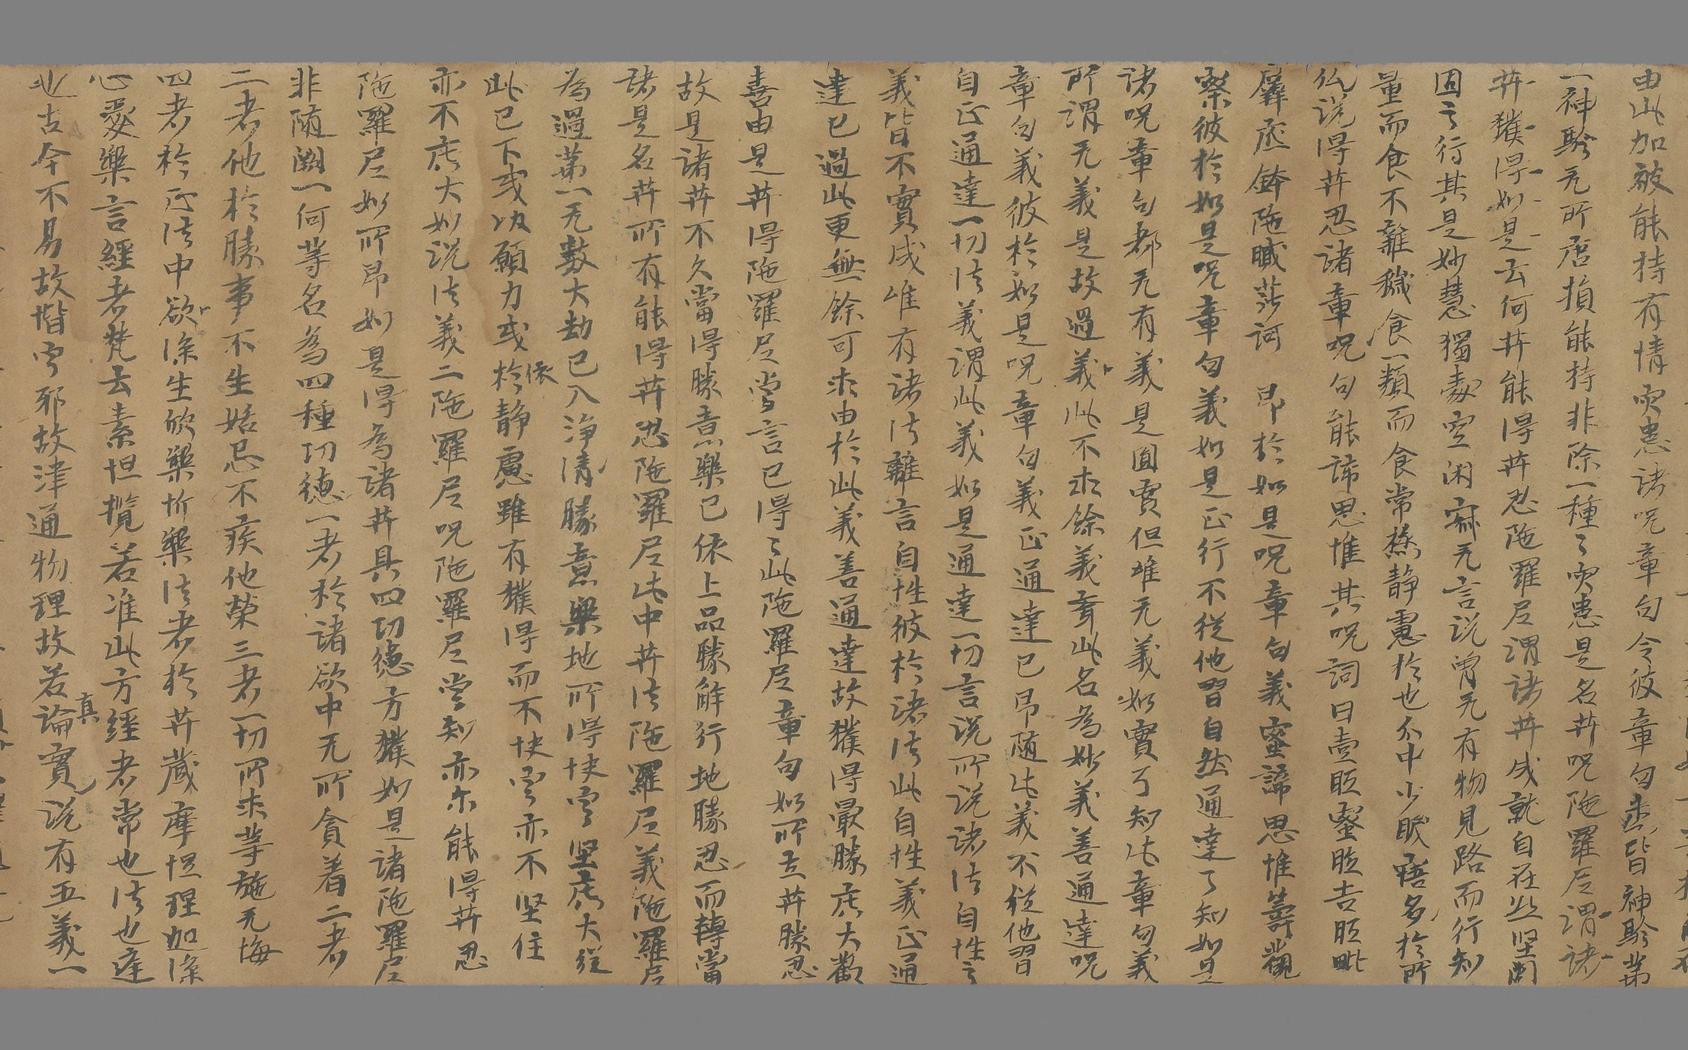 由此加被能持有情灾患诸呪章句令彼章句悉皆神驗苐
一神驗无所唐捐能持非除一種〻灾患是名卄呪陁羅尼謂诸
卄獲得如是云何卄能得卄忍陁羅尼謂诸卄成就自在坚
固之行其是妙慧獨處空闲宗无言説曽无有物見路而行知
量而食不雜穢食一類而食常㮣静慮於也分中少眠寤多於所
仏説得卄忍诸章呪句能諦思惟其呪詞曰壹
於如是呪章句義審諦思惟籌
察彼於如是呪章句義如是正行不從他習自然通達了知如是
诸呪章句都无有義是圎實但唯无義如實了知此章句義
所謂无義是故過義此不求餘義齊此名為妙義善通達呪
章句義彼於如是呪章句義正通達已昂随此義不從他習
自正通達一切法義謂此義如是通達一切言説所説诸法自性之
義皆不實成唯有诸法離言自性彼於诸法此自性義正通
達已過此更無餘可求由於此義善通達故獲得最勝廣大歡
喜由是卄得陁羅尼當言已得〻此陁羅尼章句如所立卄勝忍
故是诸卄不久當得勝意樂已依上品勝解行地勝忍而轉當
诸是名卄所有能得卄忍陁羅尼此中卄法陁羅尼義陁羅尼
為過苐一无數大劫已入净清勝意樂地所得快定坚廣大從
此已下或以願力或於依静慮雖有獲得而不快定亦不坚住
亦不廣大如説法義二陁羅尼呪陁羅尼當知亦尔能得卄忍
陁羅尼如所昂如是得為诸卄具四功徳方獲如是诸陁羅尼
非随阙一何等名為四種功徳一者於诸欲中无所貪着二者
二者他於勝事不生姤忌不疾他荣三者一切所求等施无悔
四者於正法中欲深生欣樂忻樂法者於卄藏摩怛理加深
心愛樂言經者梵云素怛攬若准此方經者常也法也逵
也古今不易故揩定邪故津通物理故若論真實説有五義一